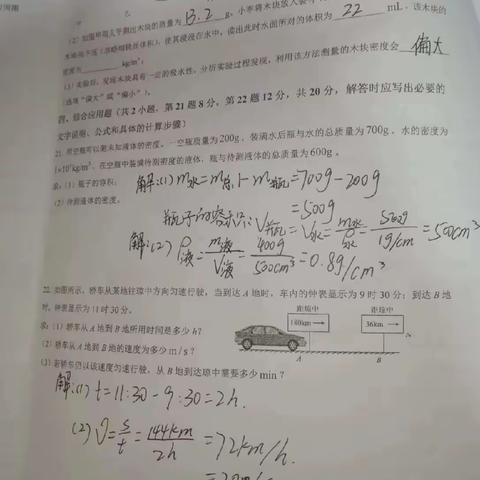 (2)如图甲 测出木块的质量为 13.2 g,小率将木块放入装有
木块 使其浸没在水中,读出此时水面所对的体积为 22 mL,该木块的
密度为 kg/m³;
(3)实验后,发现木块具有一定的吸水性,分析实验过程发现,利用该方法测量的木块密度会 偏大
(选填“偏大”或“偏小”)。
四、综合应用题(共2小题,第21题8分,第22题12分,共20分,解答时应写出必要的
文字说明、公式和具体的计算步骤)
21. 用空瓶可以测未知液体的密度。一空瓶质量为200g,装满水后瓶与水的总质量为700g,水的密度为
1×10³kg/m³,在空瓶中装满待测密度的液体,瓶与待测液体的总质量为600g。
求:(1)瓶子的容积;
解:(1) m水=m总1-m瓶=700g-200g
(2)待测液体的密度。
=500g
瓶子的容积:V瓶=V水=m水/ρ水=500g/1g/cm=500cm³
解:(2) ρ液=m液/V液=400g/500cm³=0.8g/cm³
22. 如图所示,轿车从某地往琼中方向匀速行驶,当到达A地时,车内的钟表显示为9时30分;到达B地
时,钟表显示为11时30分。
求:(1)轿车从A地到B地所用时间是多少h?
(2)轿车从A地到B地的速度为多少m/s?
(3)若轿车仍以该速度匀速行驶,从B地到达琼中需要多少min?
距琼中
180km
距琼中
36km
A
B
解:(1) t=11:30-9:30=2h.
(2) v=s/t=144km/2h=72km/h.